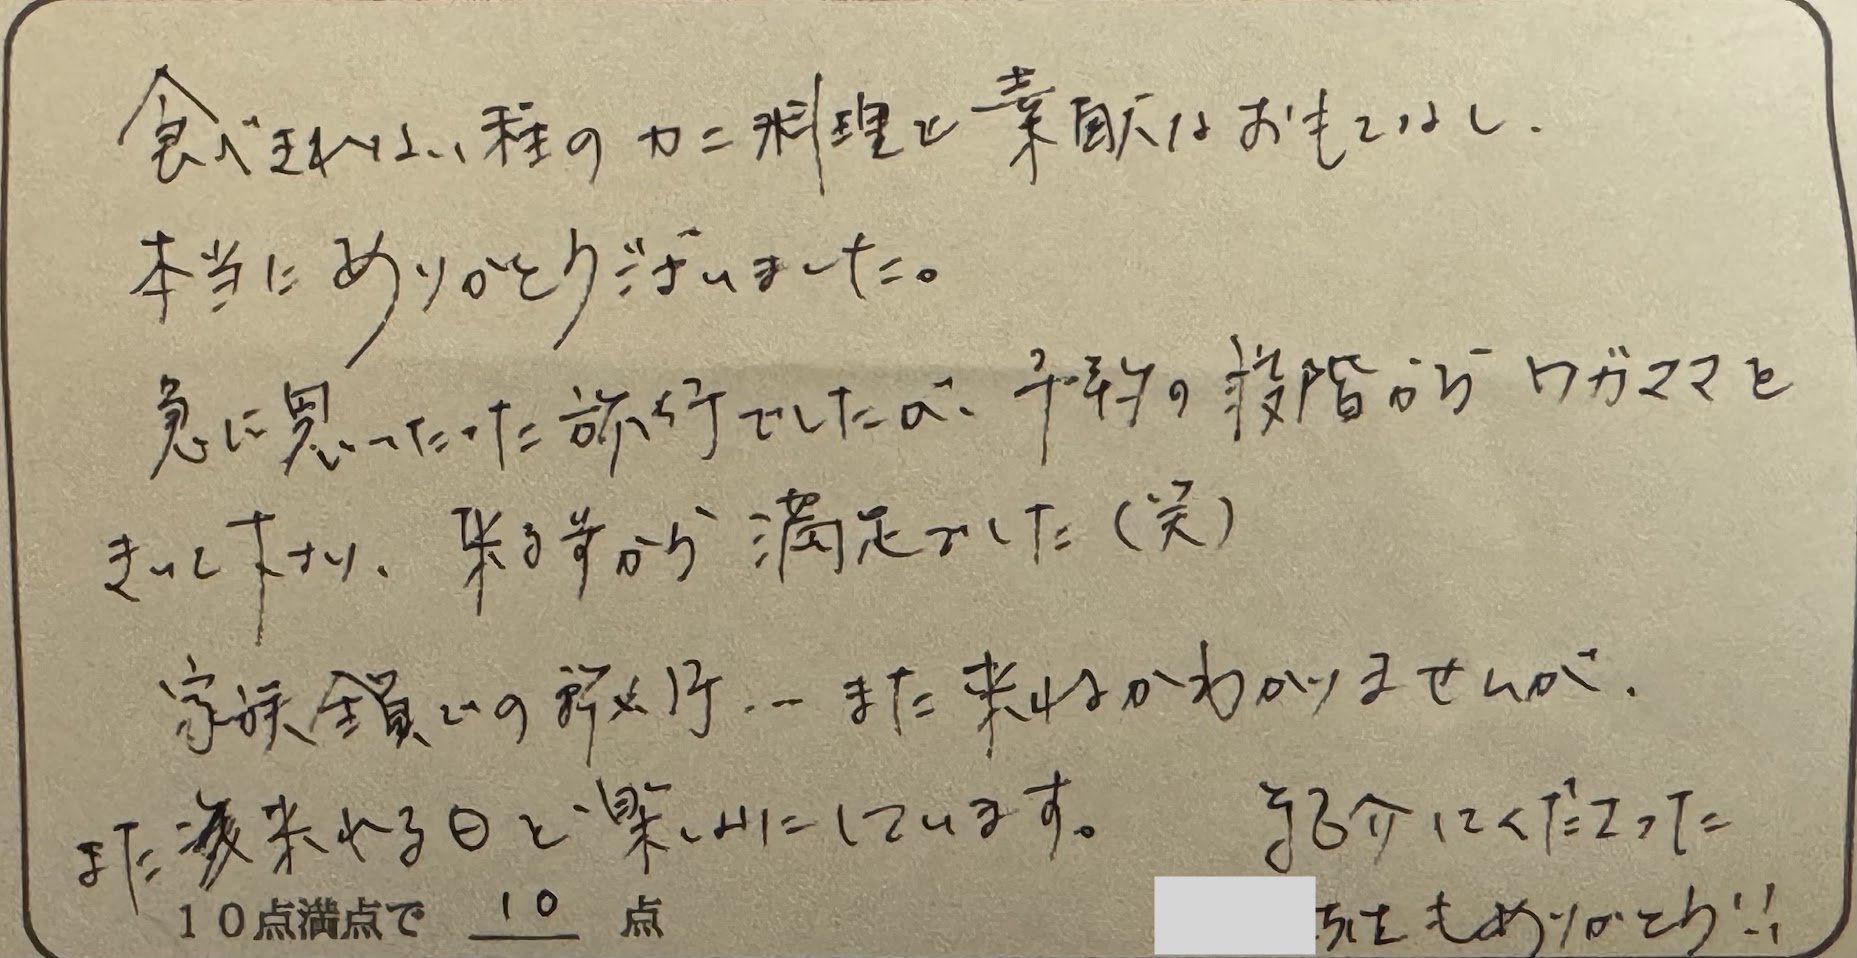 食べきれない種のカニ料理と素敵なおもてなし、
本当にありがとうございました。
急に思いたった旅行でしたが、予約の段階からワガママを
きいて下さり、来る前から満足でした(笑)
家族全員での旅行…また来れるかわかりませんが、
また来れる日を楽しみにしています。
紹介してくださった
先生もありがとう!!
10点満点で 10 点